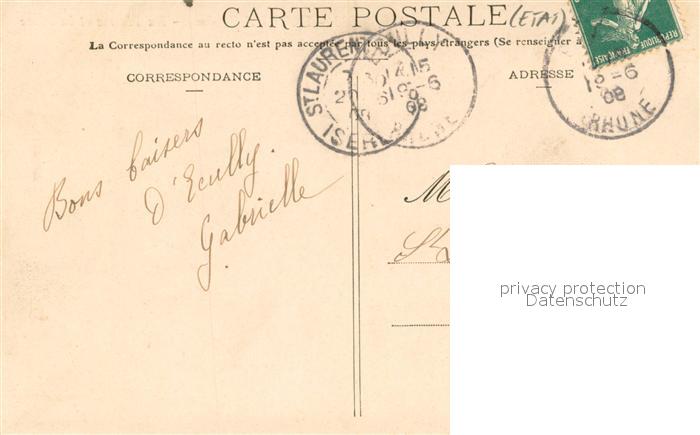 CARTE POSTALE (ETAT)
La Correspondance au recto n'est pas acceptée par tous les pays étrangers (Se renseigner à
CORRESPONDANCE
ADRESSE
ST LAURENT
ISERE
RHONE
19-6
08
REPUBLIQUE FRANCAISE
Bons baisers
D'Ecully.
Gabrielle
M
St
privacy protection
Datenschutz